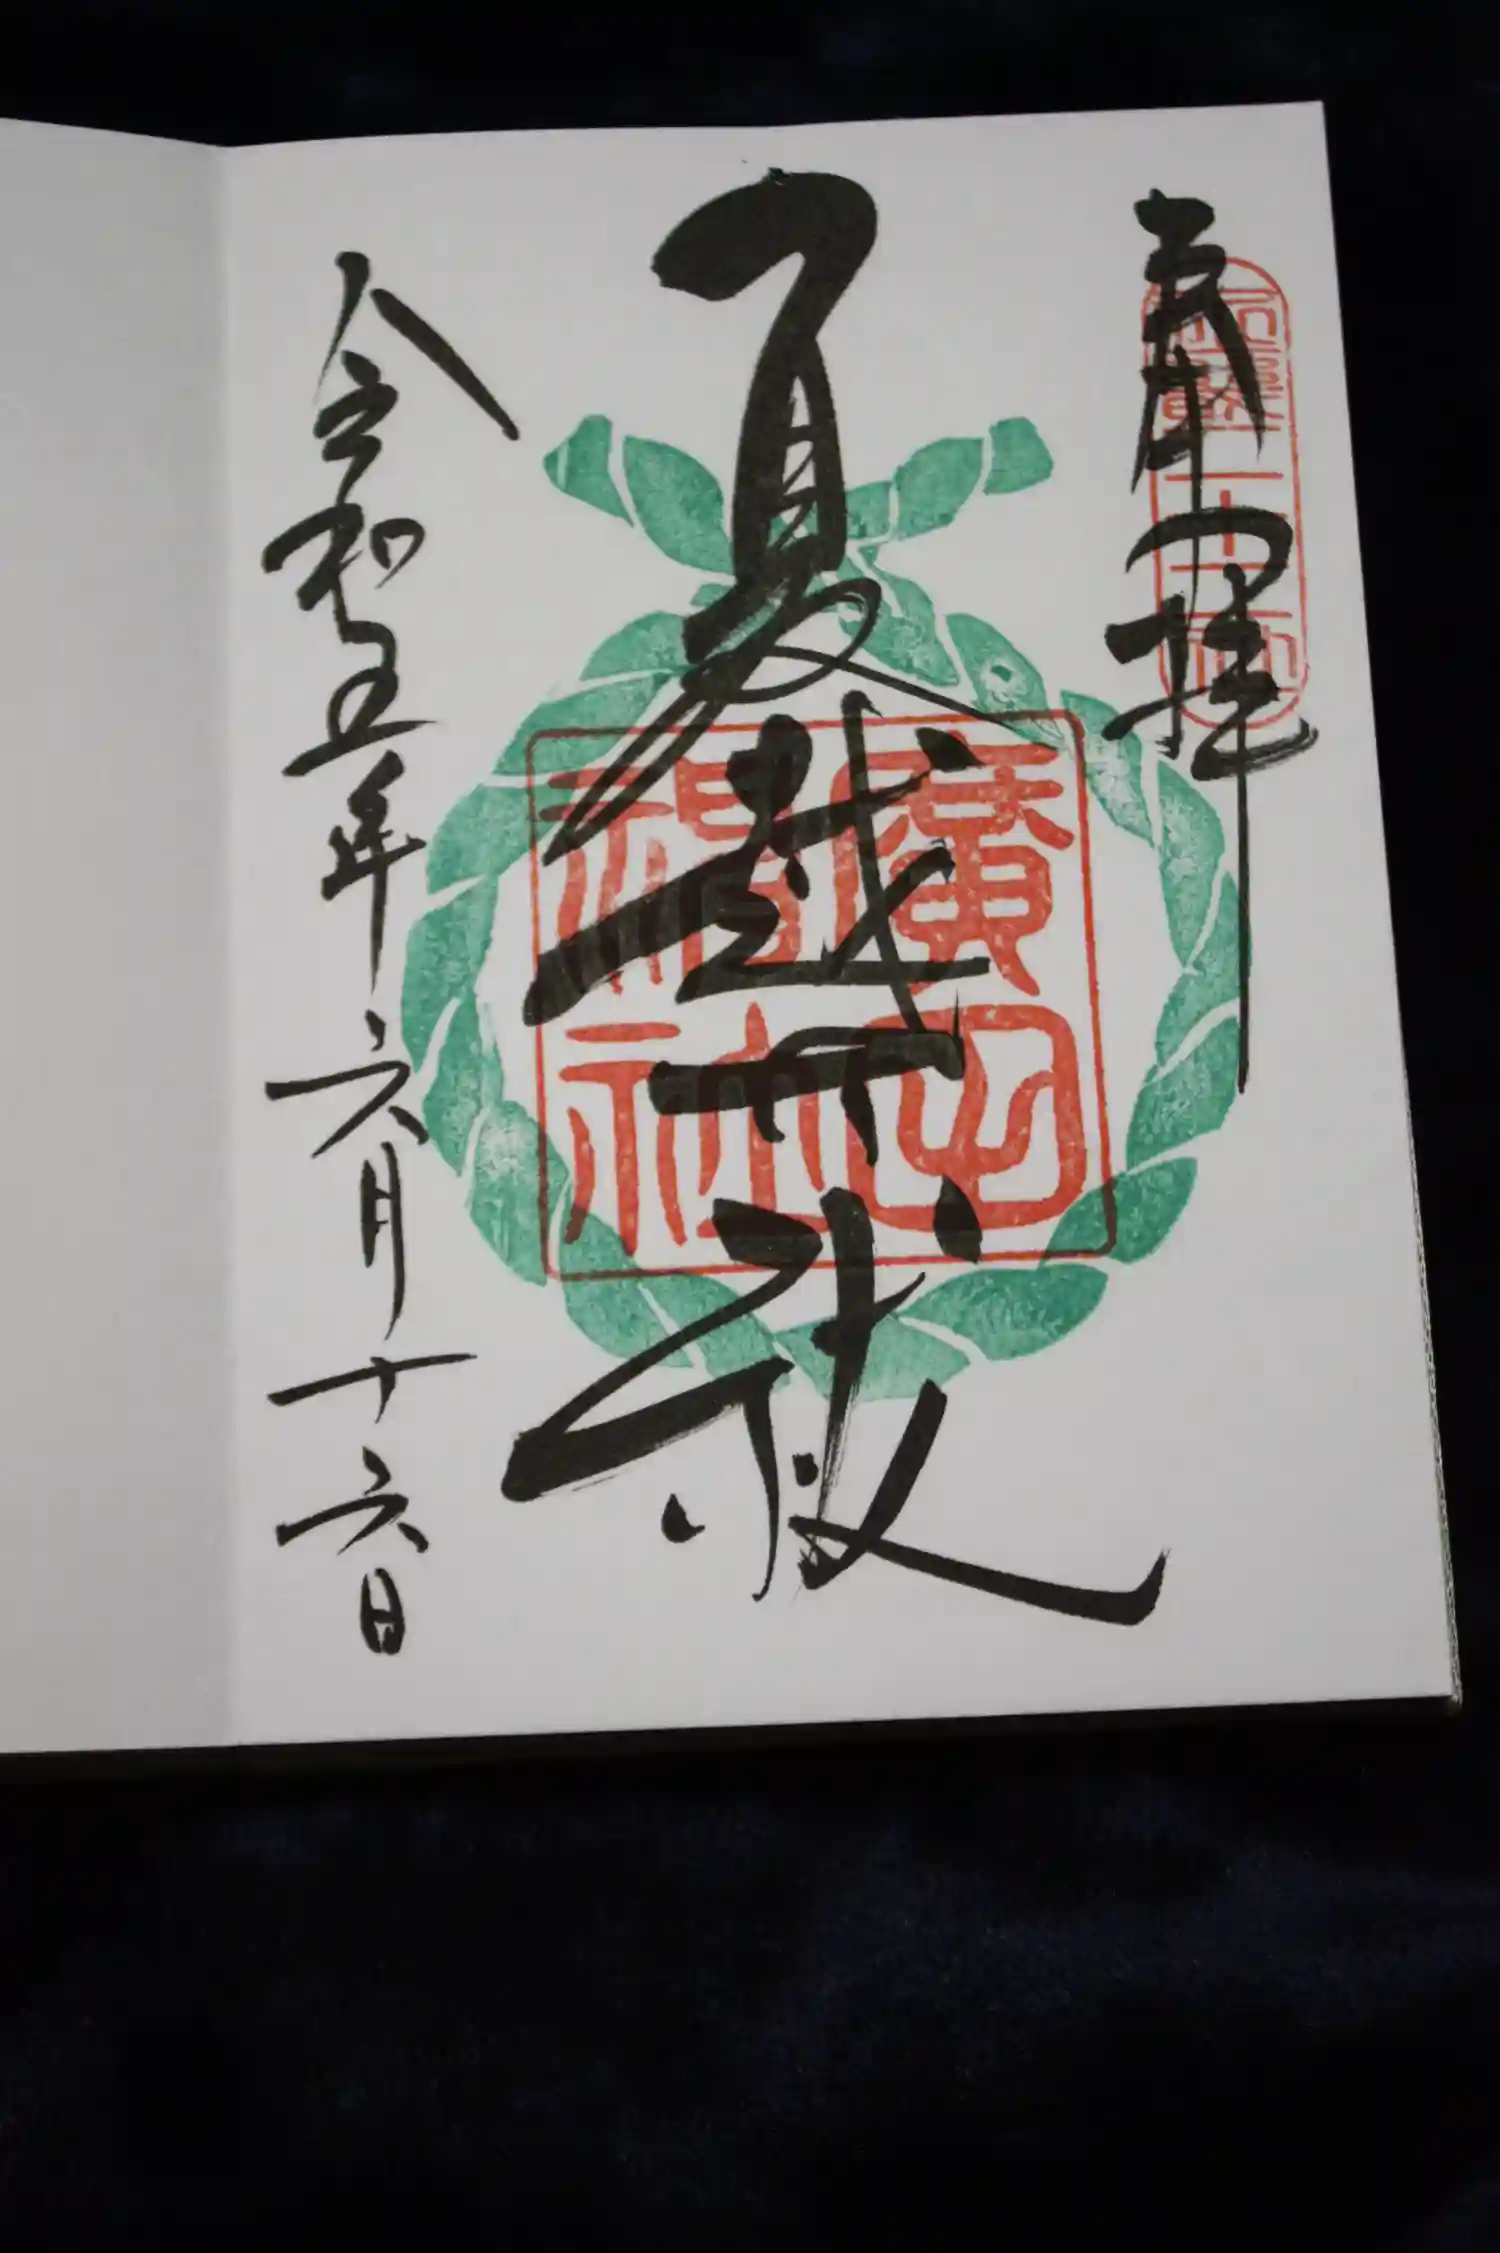 奉拝
二十二社
夏越大祓
廣田神社
令和五年六月十六日